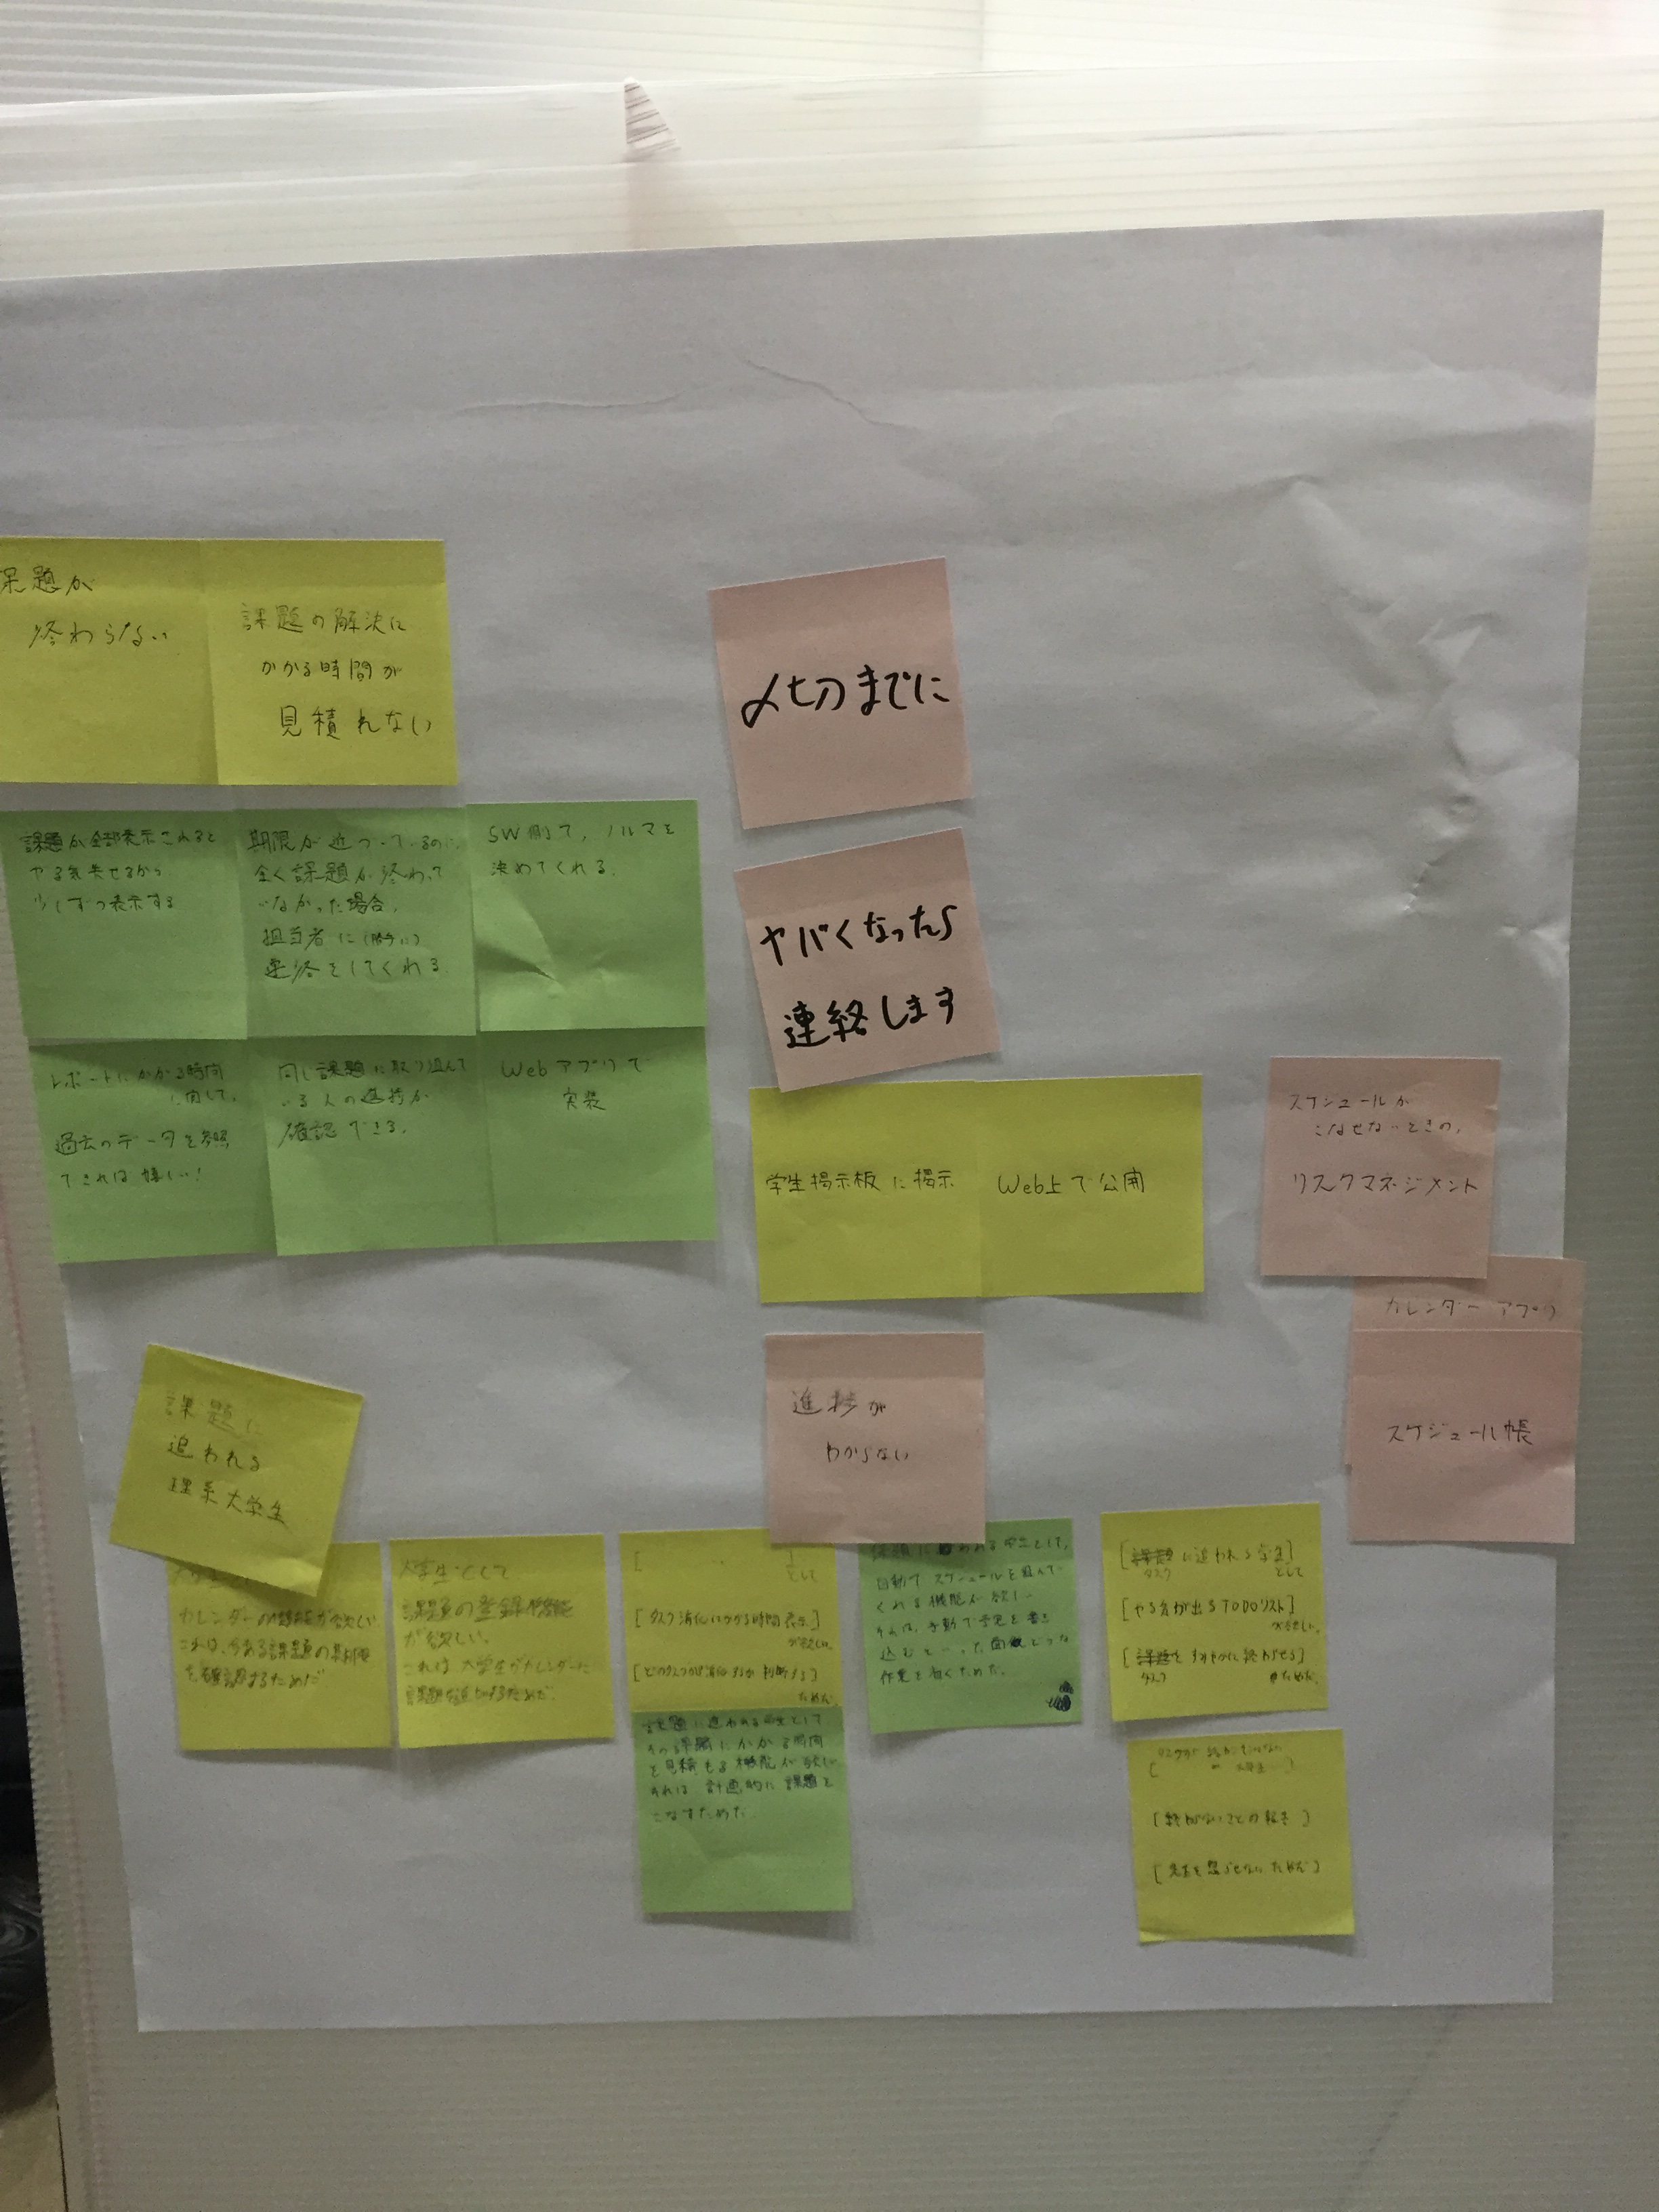 課題が
終わらない
課題の解決に
かかる時間が
見積れない
〆切までに
課題が全部表示されると
やる気失せるから
少しずつ表示する
期限が近づいているのに
全く課題が終わって
いなかった場合、
担当者に(勝手に)
連絡をしてくれる
SW側で、ノルマを
決めてくれる
ヤバくなったら
連絡します
レポートにかかる時間
に関して、
過去のデータを参照
できれば嬉しい!
同じ課題に取り組んで
いる人の進捗が
確認できる。
Webアプリで
実装
学生掲示板に掲示
Web上で公開
スケジュールが
こなせないときの、
リスクマネジメント
カレンダーアプリ
スケジュール帳
課題に
追われる
理系大学生
進捗が
わからない
カレンダーの機能が欲しい
これは、今ある課題の
を確認するためだ
大学生として
課題の登録機能
が欲しい。
これは大学生がカレンダーに
課題を するためだ
[ ]
として
[タスク消化にかかる時間表示]
が欲しい。
[どのタスクが消化するか判断する]
ためだ
課題に追われる 生として
その課題にかかる時間
を見積もる機能が欲しい
それは計画的に課題を
こなすためだ
課題に追われる 生として、
自動でスケジュールを組んで
くれる機能が欲しい
それは、手動で予定を書き
込むといった面倒な
作業を省くためだ。
[課題に追われる学生]
タスク として
[やる気が出るTODOリスト]
が欲しい。
[課題をすみやかに終わらせる]
タスク ためだ
[終わらないことの報告]
[先生を怒らせないためだ]